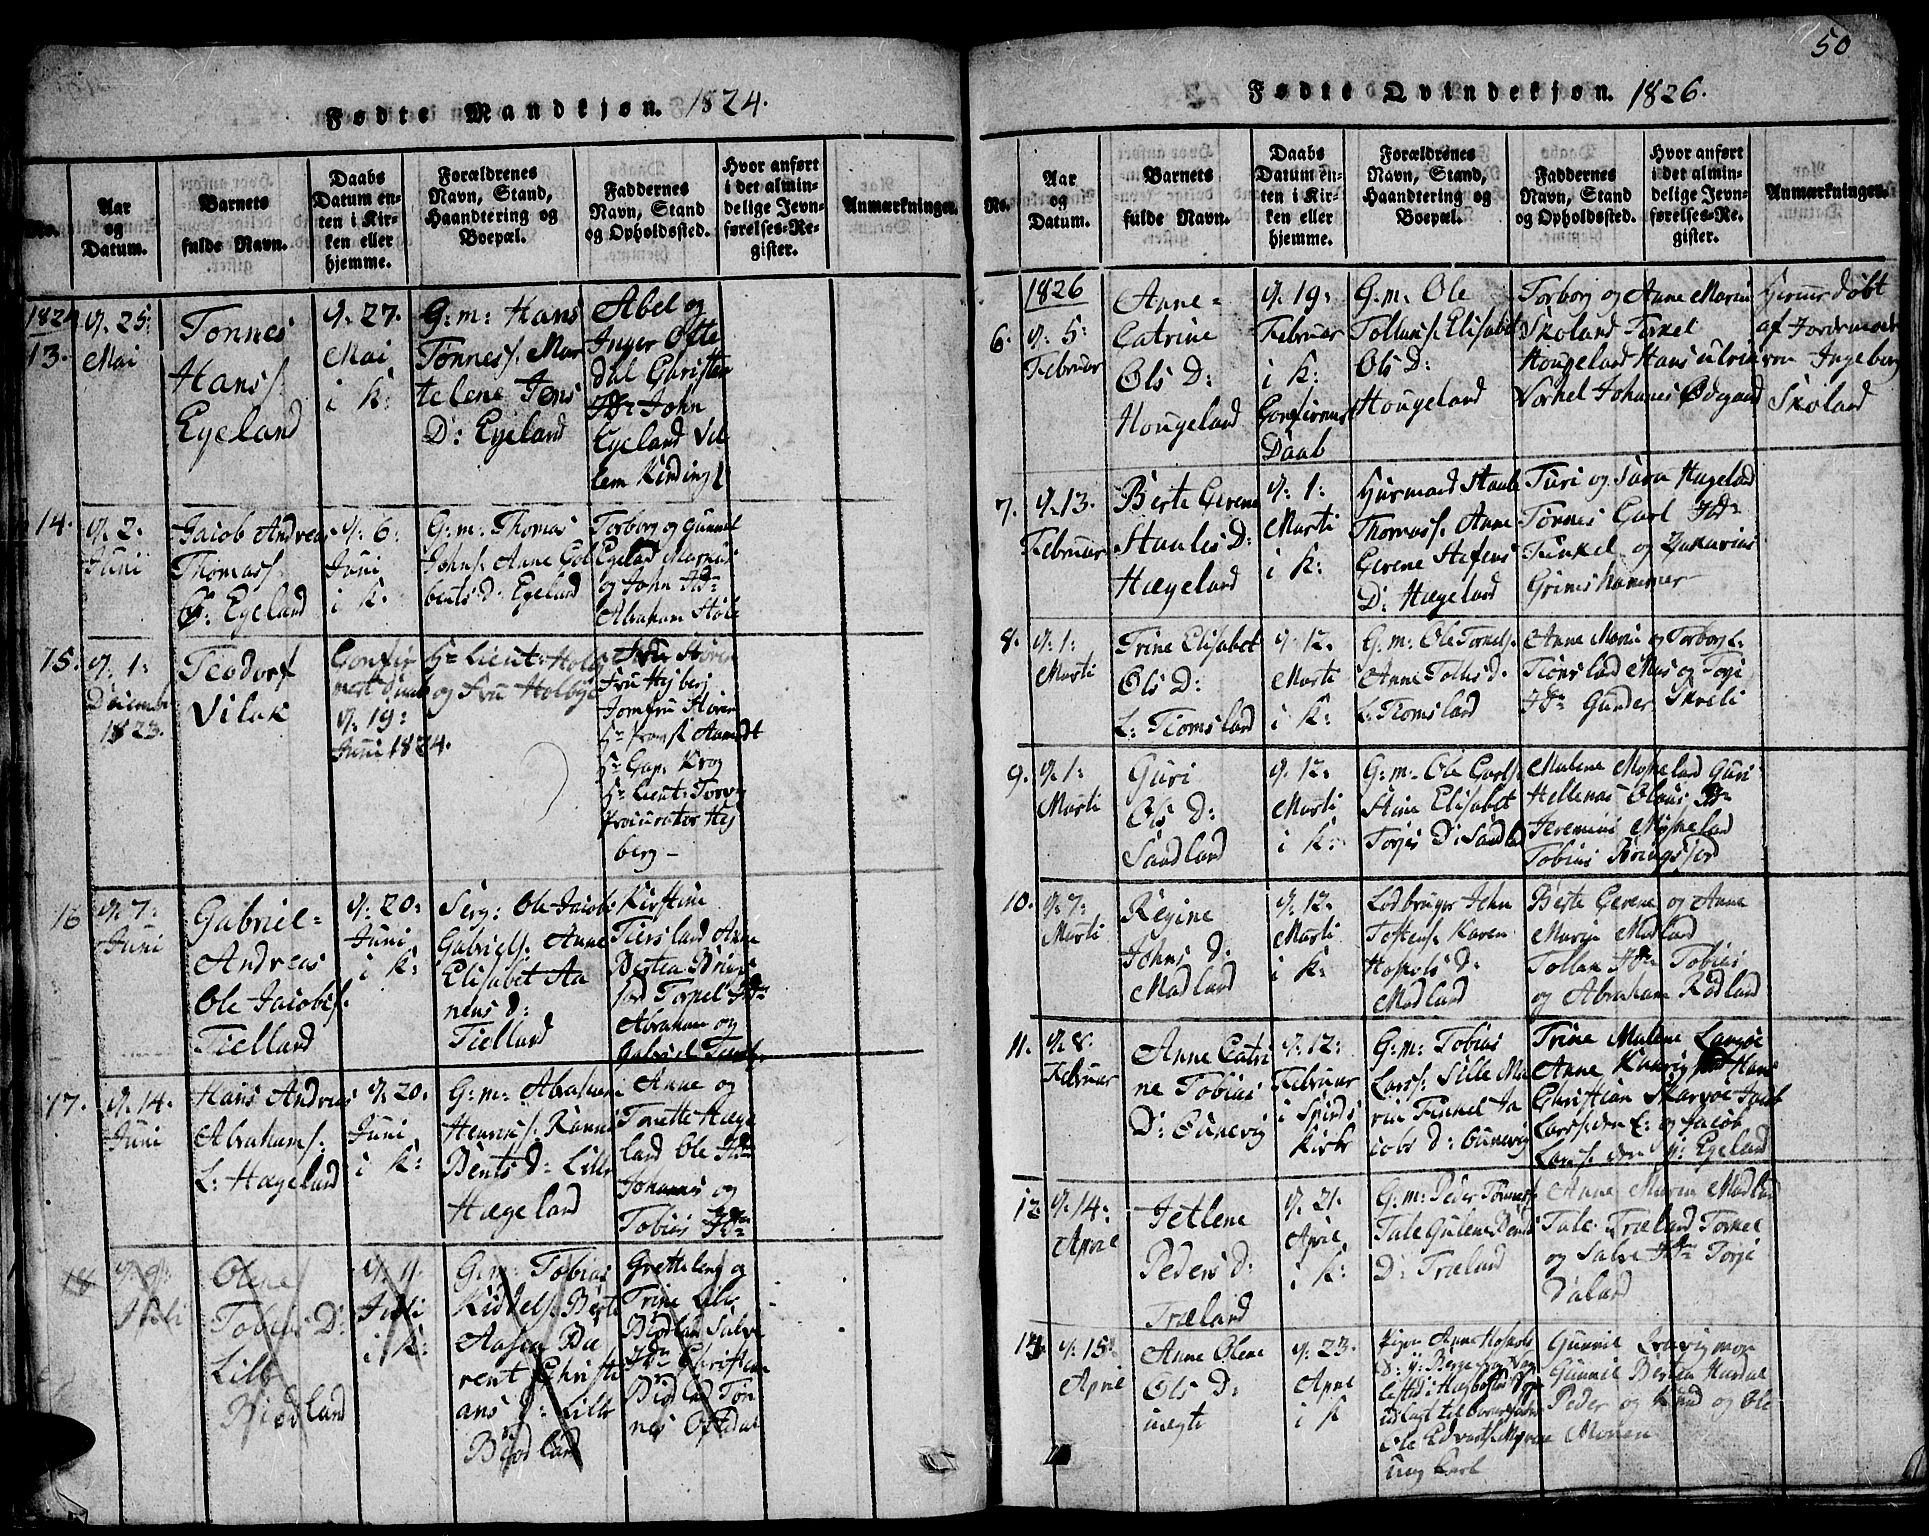 Fødte Mandkjøn. 1824.
No.
Aar
og
Datum.
Barnets
fulde Navn.
Daabs
Datum en-
ten i Kir-
ken eller
hjemme.
Forældrenes
Navn, Stand,
Haandtering og
Boepæl.
Faddernes
Navn, Stand
og Opholdssted.
Hvor anført
i det almin-
delige Jevn-
førelses-Re-
gister.
Anmærkninger.
1824
13.
d. 25:
Mai
Tönnes
Hans s.
Egeland
d. 27.
Mai
i K:
G:m: Hans
Tønnes s. Mar
telene Jens
D: Egeland
Abel og
Inger Ofte
dal Christen
John
Egeland Vil
lem
14.
d. 2:
Juni
Jacob Andreas
Thomas s.
Egeland
d. 6:
Juni
i K:
G:m: Thomas
Johns. Anne Col
bents D: Egeland
Torborg og Gunnil
Egeland Marcus
og John Ids
Abraham
15.
d. 1:
Decembr
1823.
Teodorf
Vilak
Confir
mert daab
d. 19:
Juni 1824.
Hr Lieut: Holby
og Fru Holbye
Fru
Fru Hejberg
Jomfru
Hr Provst Aamodt
Hr Cap: Krog
Hr Lieut:
Procurator Hej
berg
16
d. 7:
Juni
Gabriel
Andreas
Ole Jacobs.
Tielland
d. 20:
Juni
i K:
Serg: Ole Jacob
Gabriels. Anne
Elisabet Aa
nens D:
Tielland
Kirstine
Tiersland Anne
Bertea Brings
jord Torkel Ids
Abraham og
Gabriel
17.
d. 14.
Juni
Hans Andreas
Abrahams.
L: Hægeland
d. 20:
Juni
i K:
G:m: Abraham
Henriks.
Bents D: Lille
Hægeland
Anne og
Tonette Hæge
land Ole Ids
Johannis og
Tobias Ids
18
d. 9:
Juli
Olene
Tobias D:
Lille
Biodland
d. 11.
Juli
i K:
G:m: Tobias
Kiddels. Berte
Aasen Ba
rent Christi
ans D: Lille
Biodland
Gretteleng og
Trine Lille
Biodland Salve
Ids Christian
Biodland Tön
nes Oftedal
50
Fødte Qvindekjøn. 1826.
No.
Aar
og
Datum.
Barnets
fulde Navn.
Daabs
Datum en-
ten i Kir-
ken eller
hjemme.
Forældrenes
Navn, Stand,
Haandtering og
Boepæl.
Faddernes
Navn, Stand
og Opholdssted.
Hvor anført
i det almin-
delige Jevn-
førelses-Re-
gister.
Anmærkninger.
1826
6.
d. 5:
Februar
Anne
Catrine
Ols D:
Hougeland
d. 19:
Februar
i K:
Confirmert
Daab
G:m: Ole
Tollaks. Elisabet
Ols D:
Hougeland
Torborg og Anne Marie
Skoland Torkel
Hougeland Hans Ulrik
Vorhel Johanes Ødegaard
Hjemmedöbt
af Jordemode
ren Ingeborg
Skoland
7.
d. 13.
Februar
Berte Serene
Staales D:
Hægeland
d. 1:
Marti
i K:
Huusmand Staale
Thomas s. Anne
Serene Stefens
D: Hægeland
Turi og Sara Hægeland
Tønnes Carl Ids
Tinkel og Zakarias
Grimshammer
8.
d. 1:
Marti
Trine Elisabet
Ols D:
L: Tiomsland
d. 12:
Marti
i K:
G:m: Ole Tornes s.
Anne Tolles D.
L: Tiomsland
Anne Marie og Torborg L:
Tiomsland Mas og Torje
Ids Gunder Skreli
9.
d. 1:
Marti
Guri
Ols D:
Sandland
d. 12:
Marti
i K:
G:m: Ole Carls.
Stine Elisabet
Torjes D: Sandland
Malene Møskeland Guri
Hellenas Olaus Ids
Jeremias Møskeland
Tobias Bringsjor
10.
d. 7:
Marti
Regine
Johns D:
Madland
d. 12:
Marti
i K:
Lodbruger John
Tostens. Karen
Hoskols D:
Madland
Berte Serene og Anne
Marie Madland
Tollak Ids Tobias
og Abraham Rødland
11.
d. 8:
Februar
Anne Catri
ne Tobias
D: Gunevig
d. 12:
Februar
i Spinds
Kirke
G:m: Tobias
Lars s. Sille Ma
rie Tinkel Ja
cobs D: Gunevig
Trine Malene Langøe
Anne Hans
Christian Skarvoe Jacob
Lars s. den E: og Jacob
Lars s. den y: Egeland
12
d. 14:
April
Jetlene
Peders D:
Træland
d. 21.
April
i K:
G:m: Peder Tønnes s.
Tale Gulene Bernts
D: Træland
Anne Maria Madland
Tale Træland Torkel
og Salve Ids Torje
Daland
13.
d. 15:
April
Anne Olene
Ols D:
uægte
d. 23.
April
i K
Pigen Anne Hoskols
D: y: Berge
i Hægbostad
udlagt til Barnefader
Ole Edvarts. Moi
ung karl
Gunnil
Gunnil Bertea Hardal
Peder og Knud og Ole
Moien